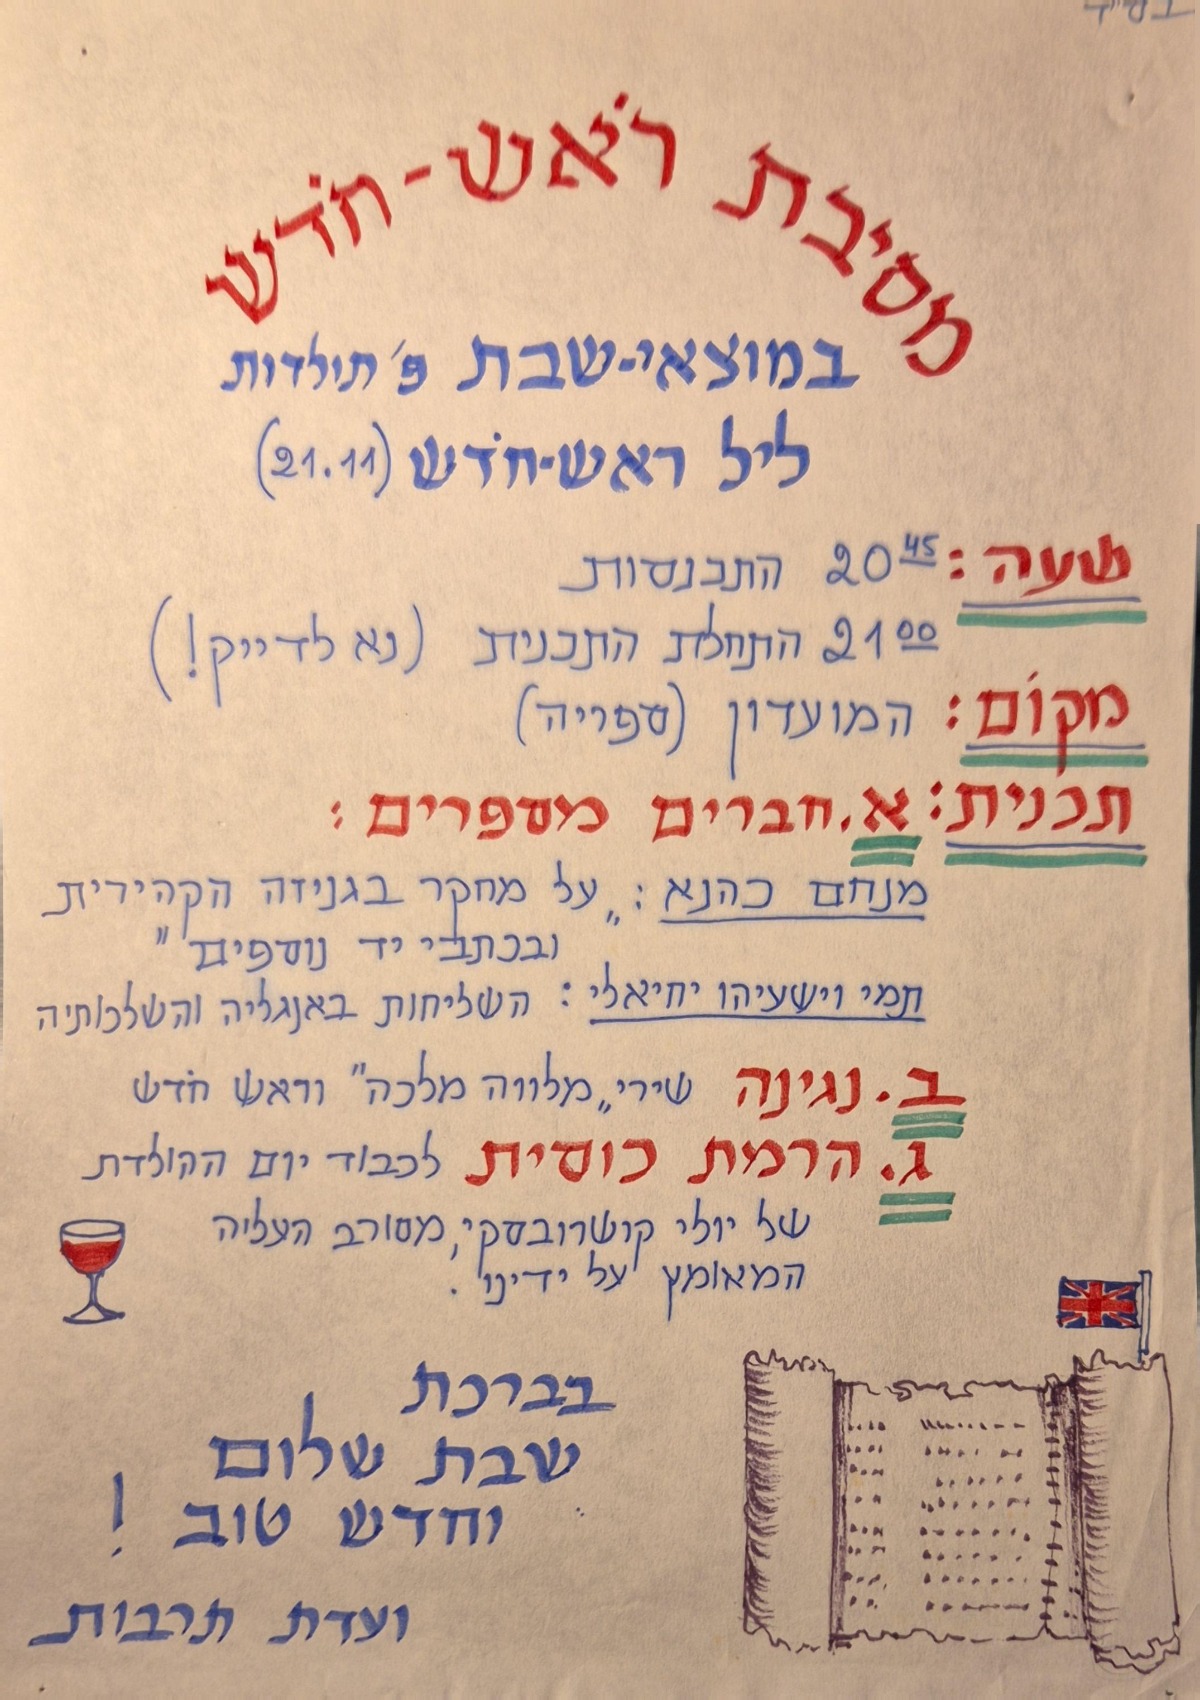 בס"ד
מסיבת ראש-חודש
במוצאי-שבת פ' תולדות
ליל ראש-חודש (21.11)
שעה: 20⁴⁵ התכנסות
21⁰⁰ התחלת התכנית (נא לדייק!)
מקום: המועדון (ספריה)
תכנית: א. חברים מספרים:
מנחם כהנא: "על מחקר בגניזה הקהירית
ובכתבי יד נוספים"
תמי וישעיהו יחיאלי: השליחות באנגליה והשלכותיה
ב. נגינה שירי "מלווה מלכה" וראש חודש
ג. הרמת כוסית לכבוד יום ההולדת
של יולי קושרובסקי, מסורב העליה
המאומץ על ידינו.
בברכת
שבת שלום
וחדש טוב!
ועדת תרבות